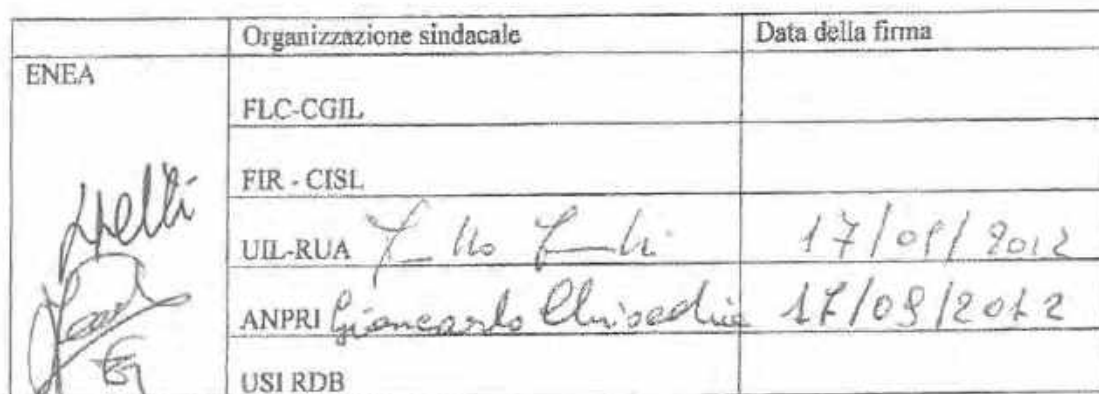 Organizzazione sindacale Data della firma
ENEA
FLC-CGIL
FIR - CISL
UIL-RUA 17/09/2012
ANPRI Giancarlo 17/09/2012
USI RDB